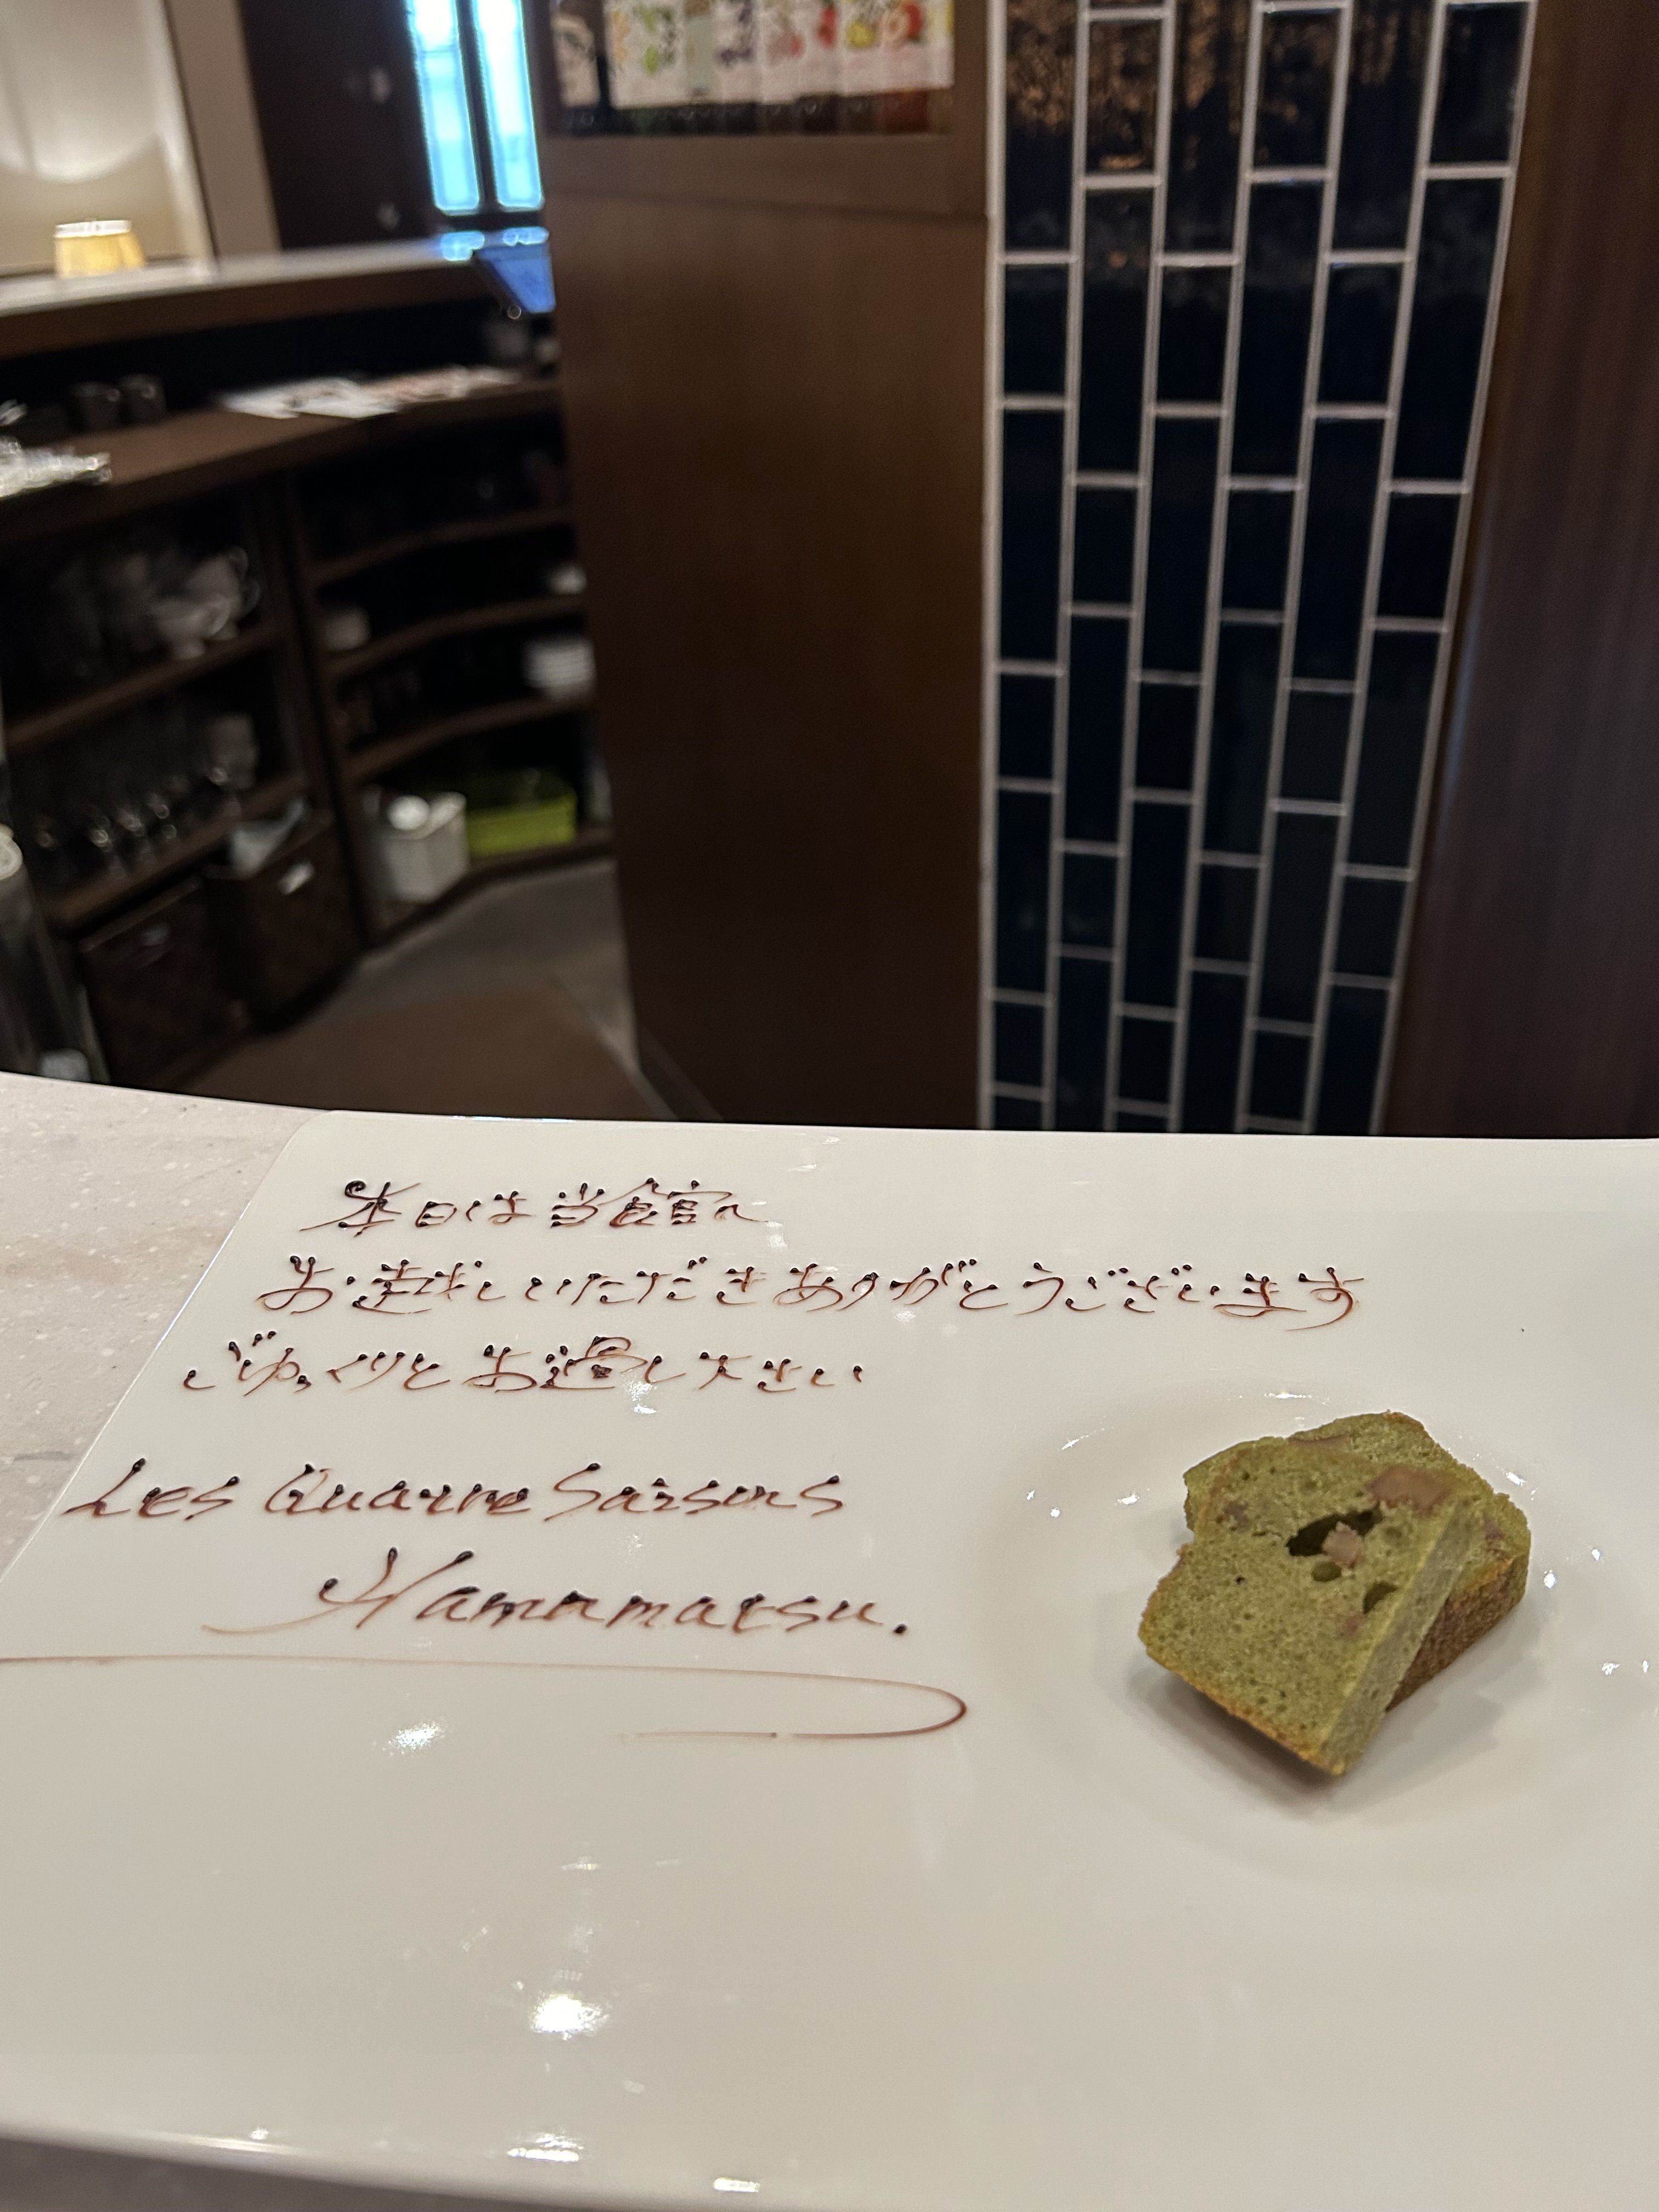 本日は当館へ
お越しいただきありがとうございます
ごゆっくりとお過し下さい
Les Quatre Saisons
Hamamatsu.